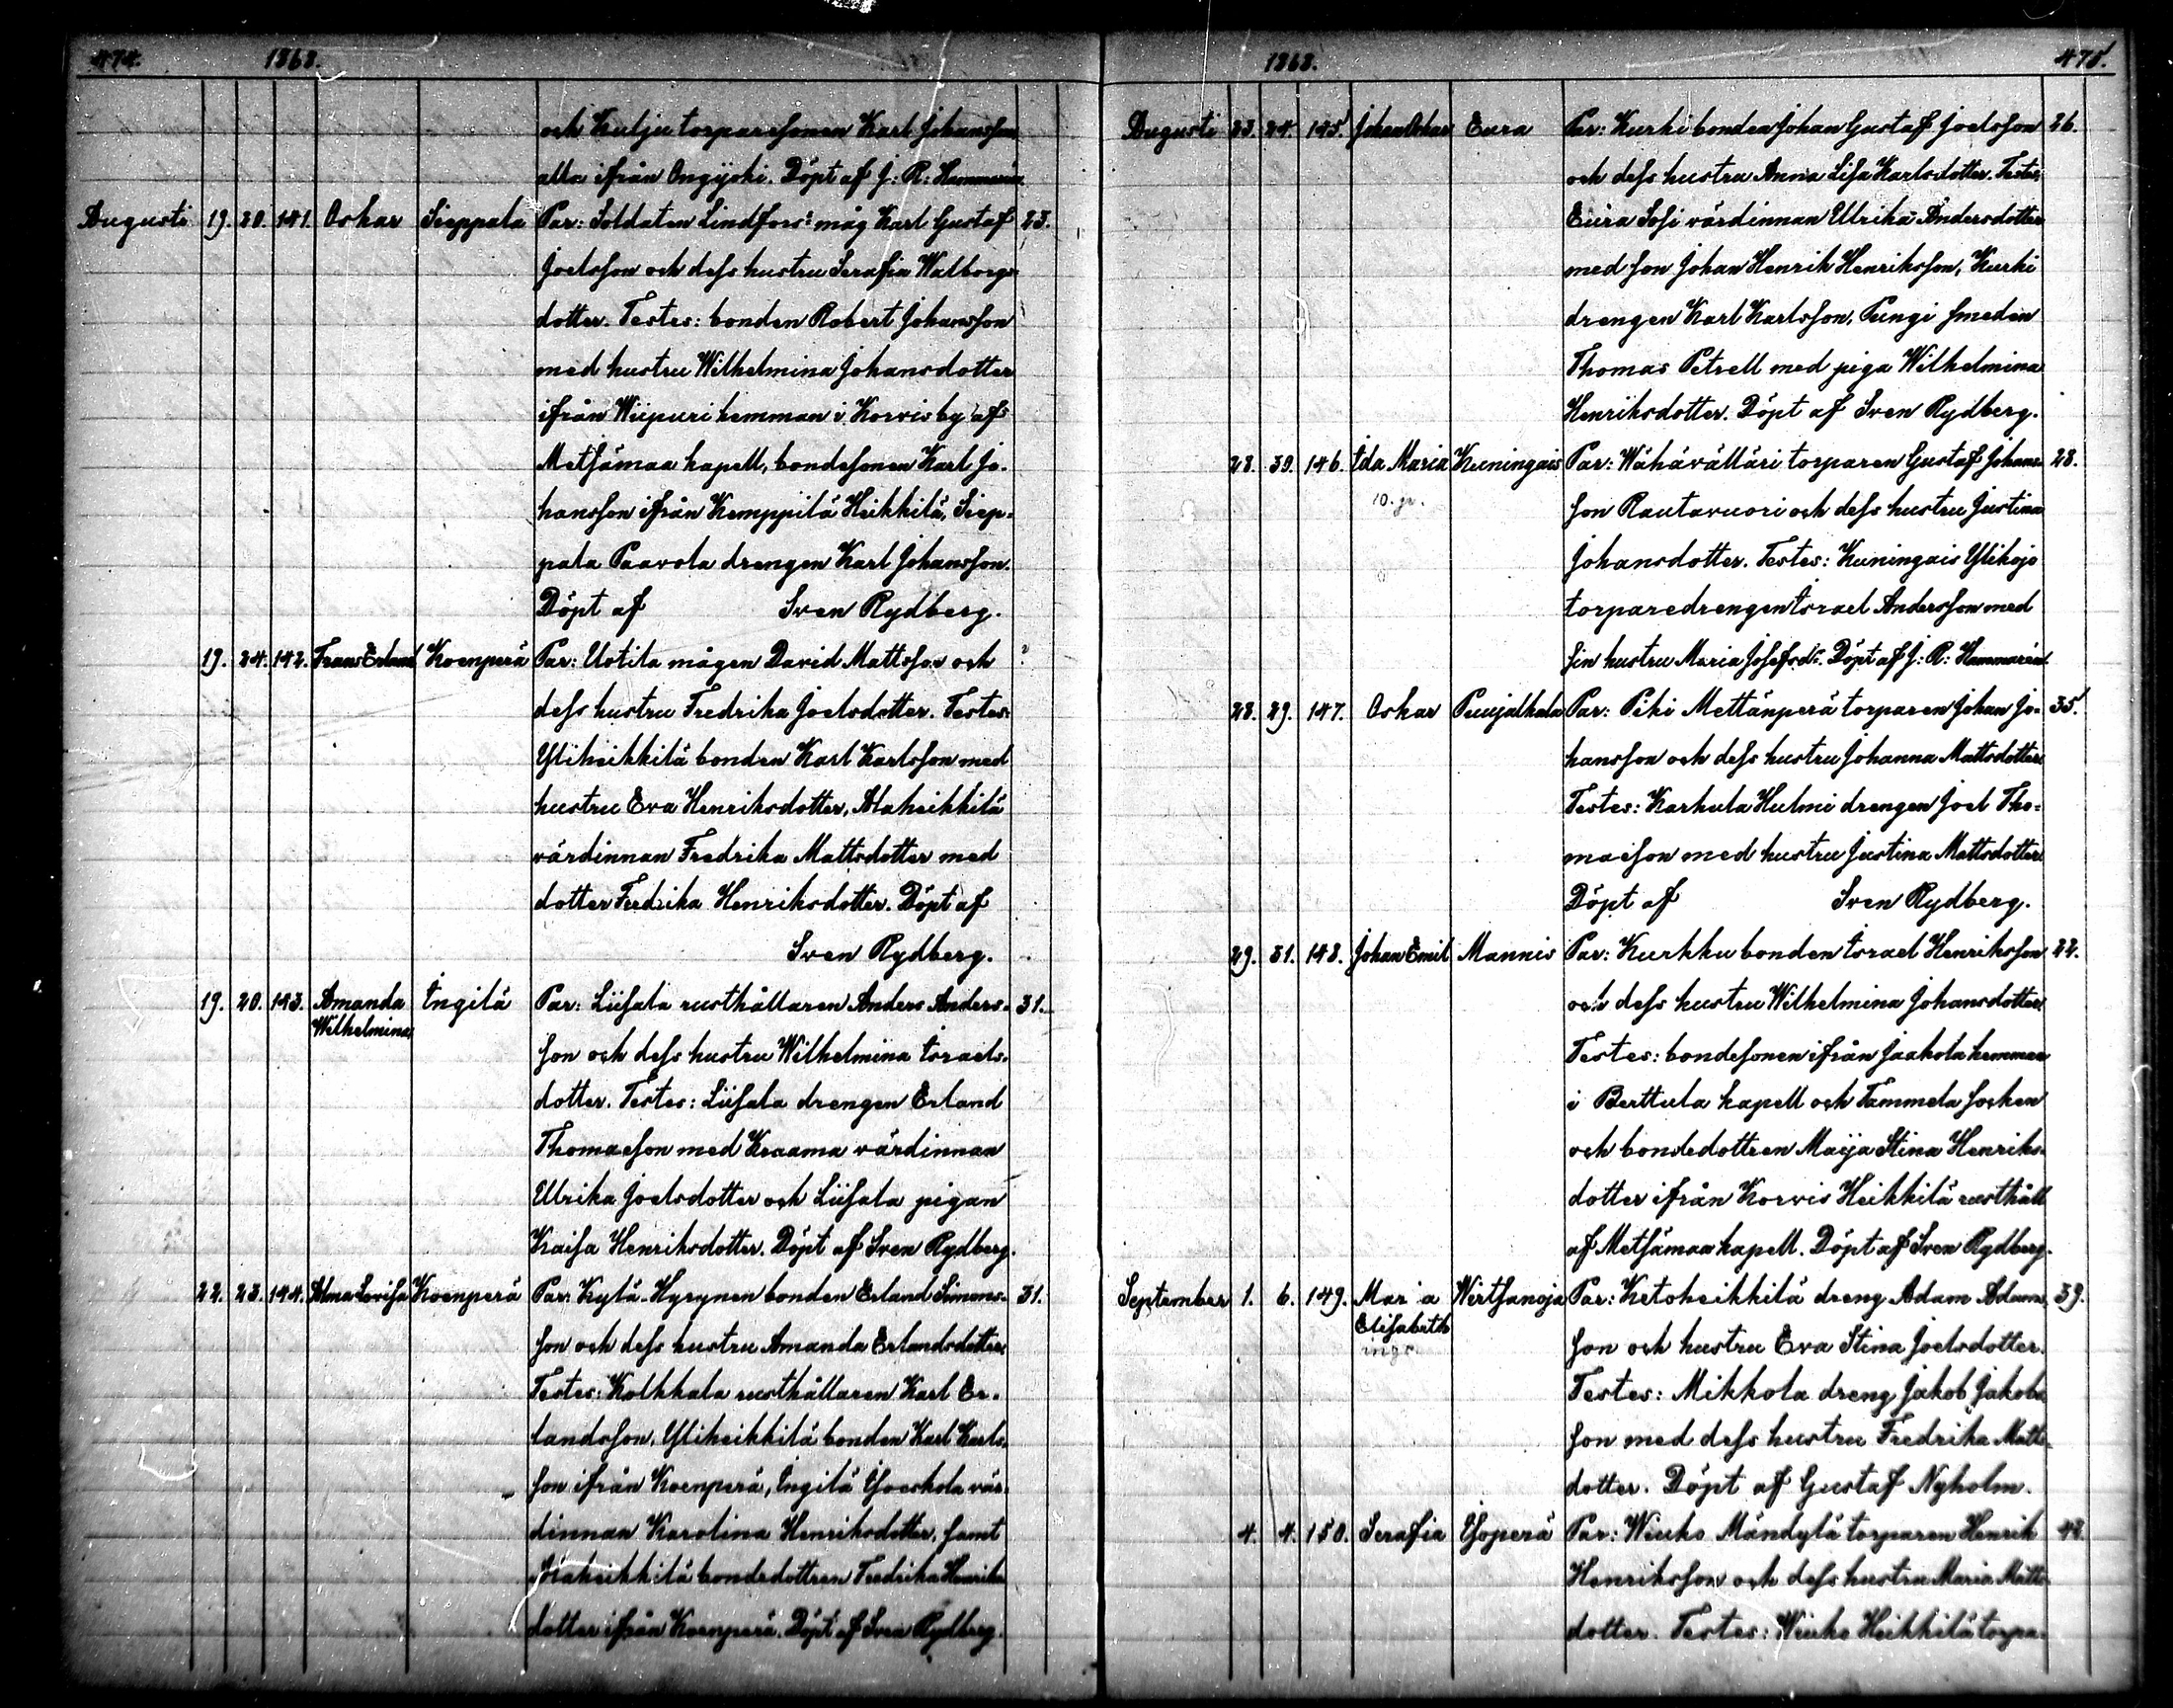 474. 1868.
och Kulju torparesonen Karl Johansson
alla ifrån Ongijoki. Döpt af J: R: Hammarén
Augusti 19. 20. 141. Oskar Sieppala Par: Soldaten Lindfors: måg Karl Gustaf 23.
Joelsson och dess hustru Serafia Walborgs-
dotter. Testes: bonden Robert Johansson
med hustru Wilhelmina Johansdotter
ifrån Wiipuri hemman i Korvis by af
Metsämaa kapell, bondesonen Karl Jo-
hansson ifrån Kemppilä Heikkilä, Siep-
pala Paavola drengen Karl Johansson.
Döpt af Sven Rydberg.
19. 24. 142. Frans Erland Koenperä Par: Uotila mågen David Mattsson och ?
dess hustru Fredrika Joelsdotter. Testes:
Yliheikkilä bonden Karl Karlsson med
hustru Eva Henriksdotter, Alaheikkilä
värdinnan Fredrika Mattsdotter med
dotter Fredrika Henriksdotter. Döpt af
Sven Rydberg.
19. 20. 143. Amanda Ingilä Par: Liisala rusthållaren Anders Anders- 31.
Wilhelmina
son och dess hustru Wilhelmina Israels-
dotter. Testes: Liisala drengen Erland
Thomasson med Kraama värdinnan
Ulrika Joelsdotter och Liisala pigan
Kaisa Henriksdotter. Döpt af Sven Rydberg.
22. 23. 144. Alma Lovisa Koenperä Par: Kylä-Hyrynen bonden Erland Simons- 31.
son och dess hustru Amanda Erlandsdotter
Testes: Kolkkala rusthållaren Karl Er-
landsson, Yliheikkilä bonden Karl Karls-
son ifrån Koenperä, Ingilä vär-
dinnan Karolina Henriksdotter, samt
Alaheikkilä bondedottren Fredrika Henriks
dotter ifrån Koenperä. Döpt af Sven Rydberg.
1868. 475.
Augusti 23. 24. 145. Johan Oskar Eura Par: Kurki bonden Johan Gustaf Joelsson 26.
och dess hustru Anna Lisa Karlsdotter. Testes,
Eura Sofi värdinnan Ulrika Andersdotter
med son Johan Henrik Henriksson, Kurki
drengen Karl Karlsson, Pungi smeden
Thomas Petrell med piga Wilhelmina
Henriksdotter. Döpt af Sven Rydberg.
28. 39. 146. Ida Maria Kuningais Par: Wähävälläri torparen Gustaf Johans- 28.
son Rautavuori och dess hustru Justina
Johansdotter. Testes: Kuningais Ylikojo
torparedrengen Israel Andersson med
sin hustru Maria Josefsdr. Döpt af J: R: Hammarén.
28. 29. 147. Oskar Punjalkala Par: Piki Mettänperä torparen Johan Jo- 35.
hansson och dess hustru Johanna Mattsdotter
Testes: Karhula Hulmi drengen Joel Tho-
masson med hustru Justina Mattsdotter
Döpt af Sven Rydberg.
29. 31. 148. Johan Emil Mannis Par: Kurkku bonden Israel Henriksson 22.
och dess hustru Wilhelmina Johansdotter
Testes: bondesonen ifrån Jaakola hemman
i Berttula kapell och Tammela socken
och bondedottren Maija Stina Henriks-
dotter ifrån Korvis Heikkilä rusthåll
af Metsämaa kapell. Döpt af Sven Rydberg.
September 1. 6. 149. Maria Wirtsanoja Par: Ketoheikkilä dreng Adam Adams 39.
Elisabeth
son och hustru Eva Stina Joelsdotter.
Testes: Mikkola dreng Jakob Jakobs
son med dess hustru Fredrika Matts-
dotter. Döpt af Gustaf Nyholm.
4. 4. 150. Serafia Isoperä Par: Winko Mändylä torparen Henrik 42.
Henriksson och dess hustru Maria Matts-
dotter. Testes: Winko Heikkilä torpa-